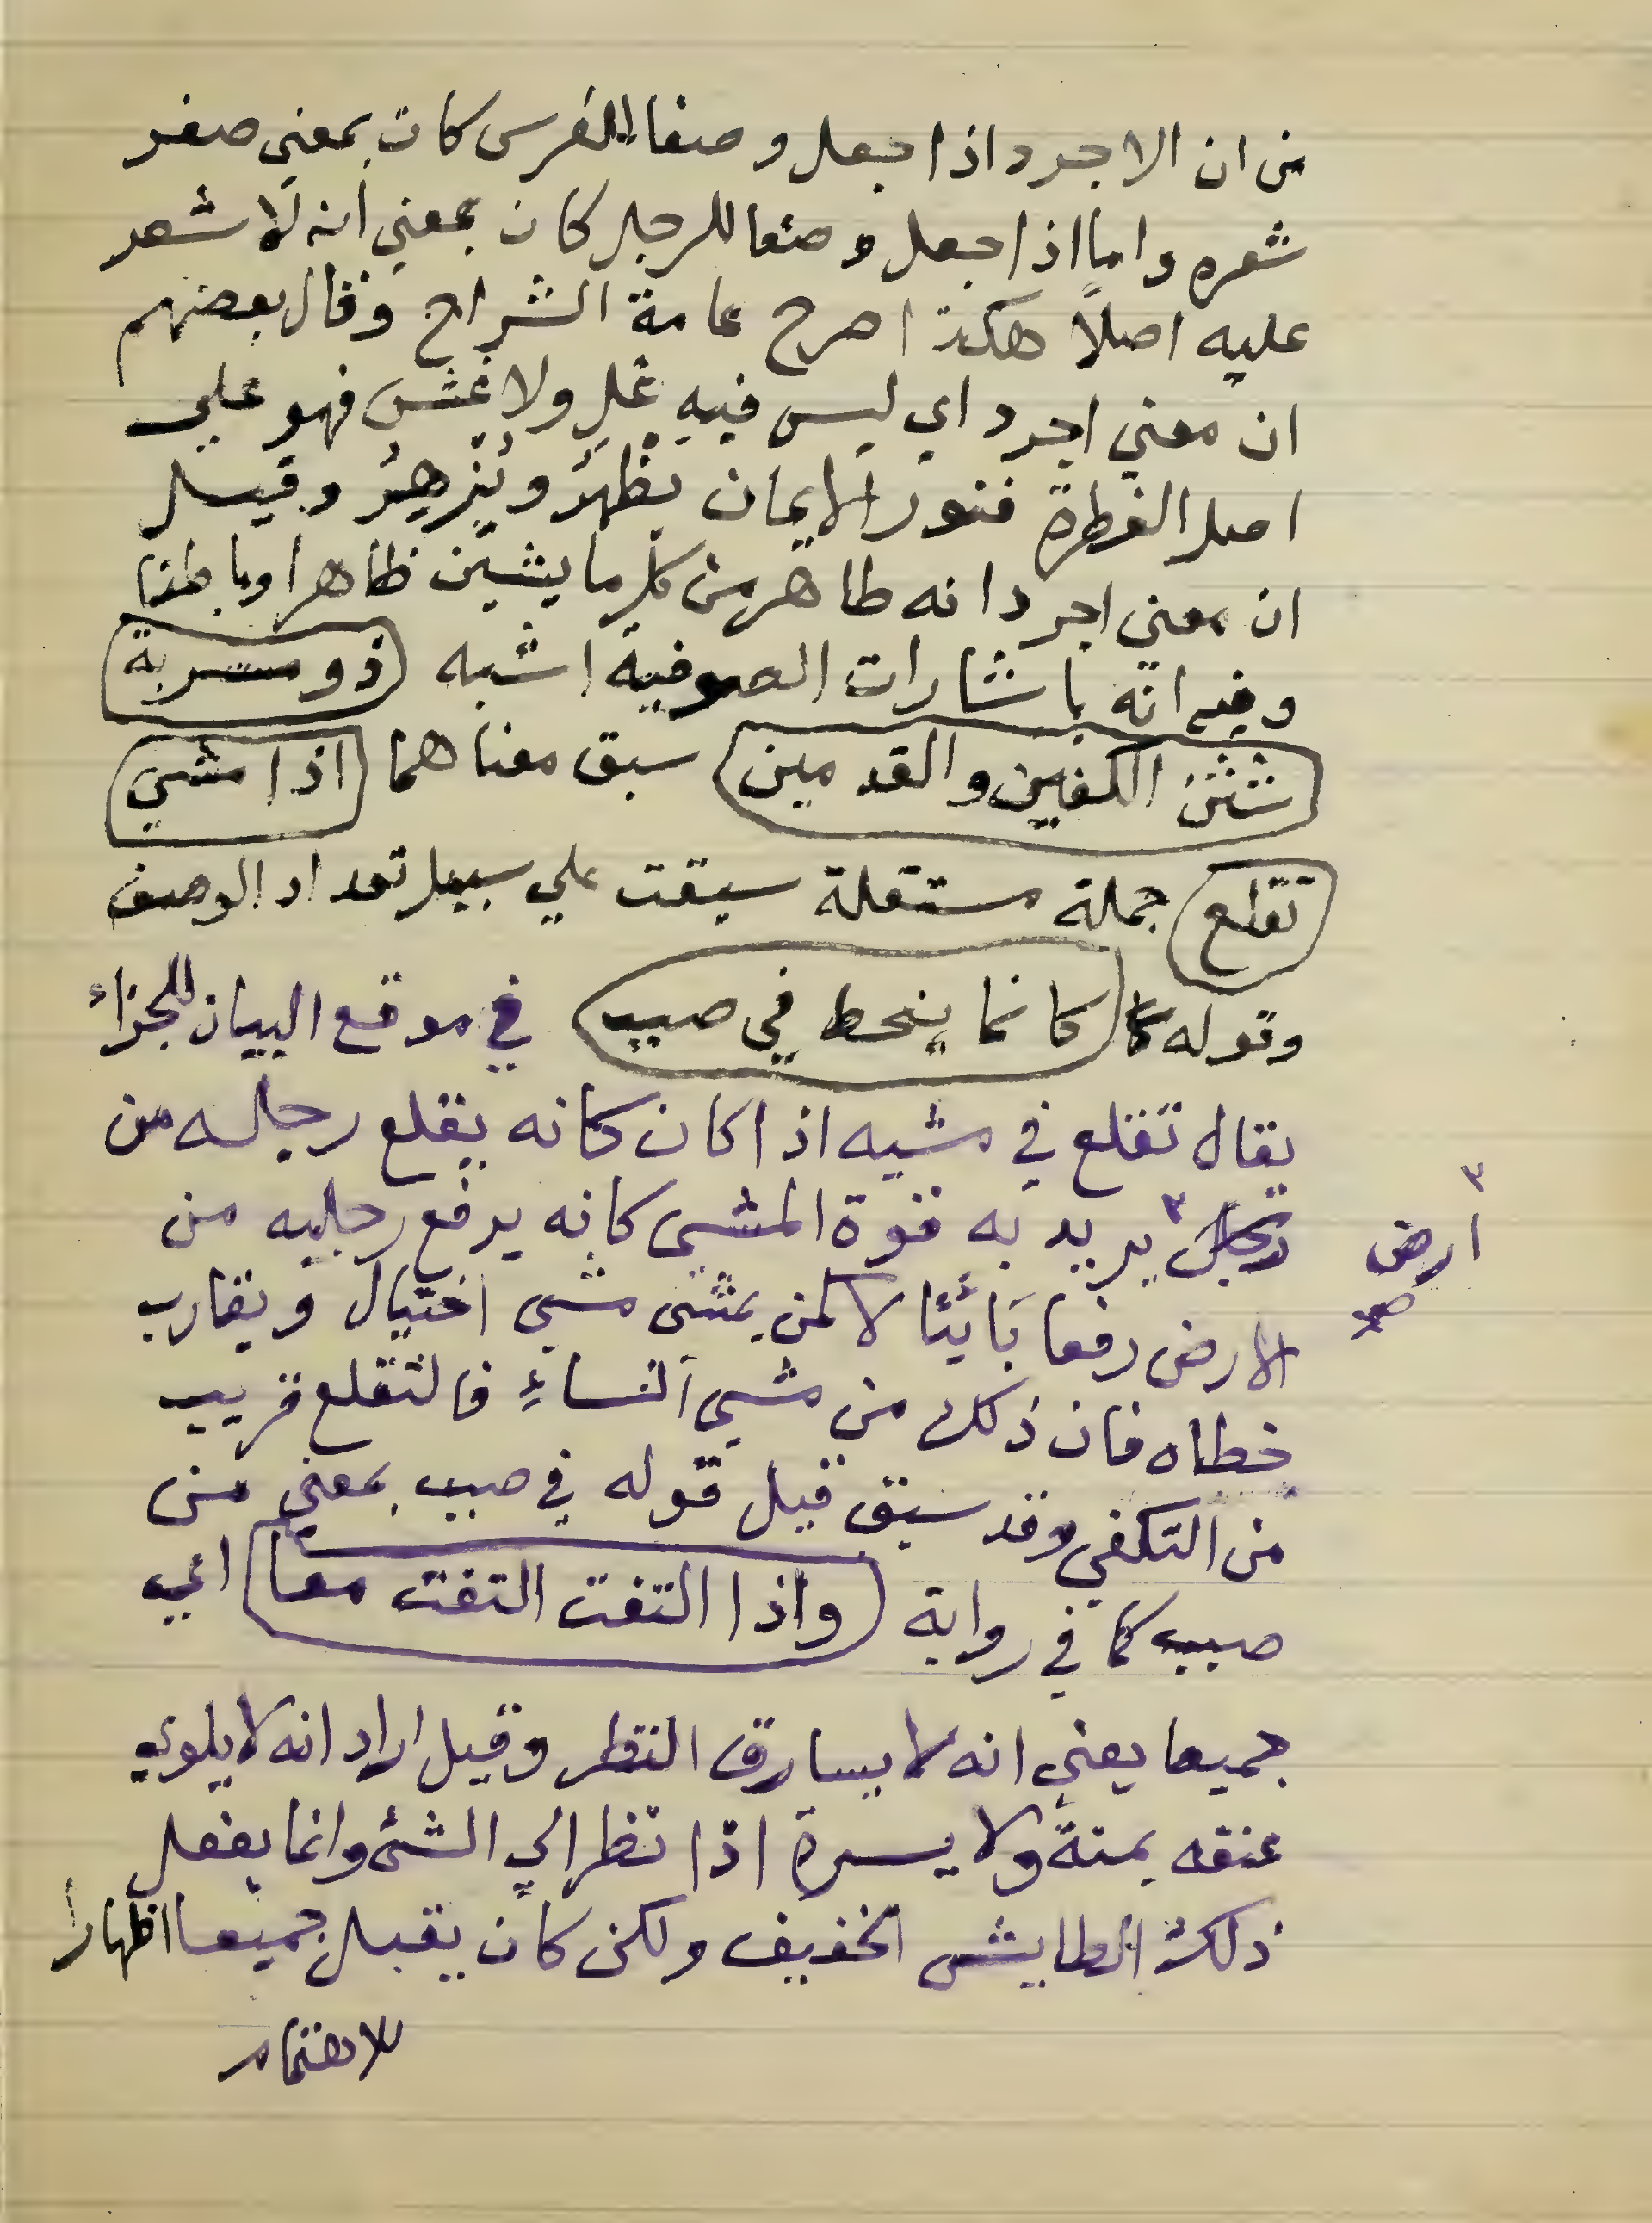 من ان الاجرد اذا جعل وصفا للفرس كان بمعني صغر
شعره واما اذا جعل وصفا للرجل كان بمعني انه لا شعر
عليه اصلاً هكذا صرح عامة الشراح وقال بعضهم
ان معني اجرد اي ليس فيه غل ولا غش فهو علي
اصل الفطرة فنور الايمان يظهر ويزهر وقيل
ان معني اجرد انه طاهر من كل ما يشين ظاهرا وباطنا
وفيه انه باشارات الصوفية اشبه ذو مسربة
شثن الكفين والقدمين سبق معناهما اذا مشي
تقلع جملة مستقلة سيقت علي سبيل تعداد الوصف
وقوله كانما ينحط في صبب في موقع البيان للجزاء
يقال تقلع في مشيه اذا كان كانه يقلع رجله من
٣ يريد به قوة المشي كانه يرفع رجليه من
٣ ارض صح
الارض رفعا بائنا لا كمن يمشي مشي اختيال ويقارب
خطاه فان ذلك من مشي النساء فالتقلع قريب
من التكفي وقد سبق قيل قوله في صبب بمعني من
صبب كما في رواية واذا التفت التفت معا اي
جميعا يعني انه لا يسارق النظر وقيل اراد انه لا يلوي
عنقه يمنة ولا يسرة اذا نظر الي الشئ وانما يفعل
ذلك الطايش الخفيف ولكن كان يقبل جميعا اظهارا
للاهتمام